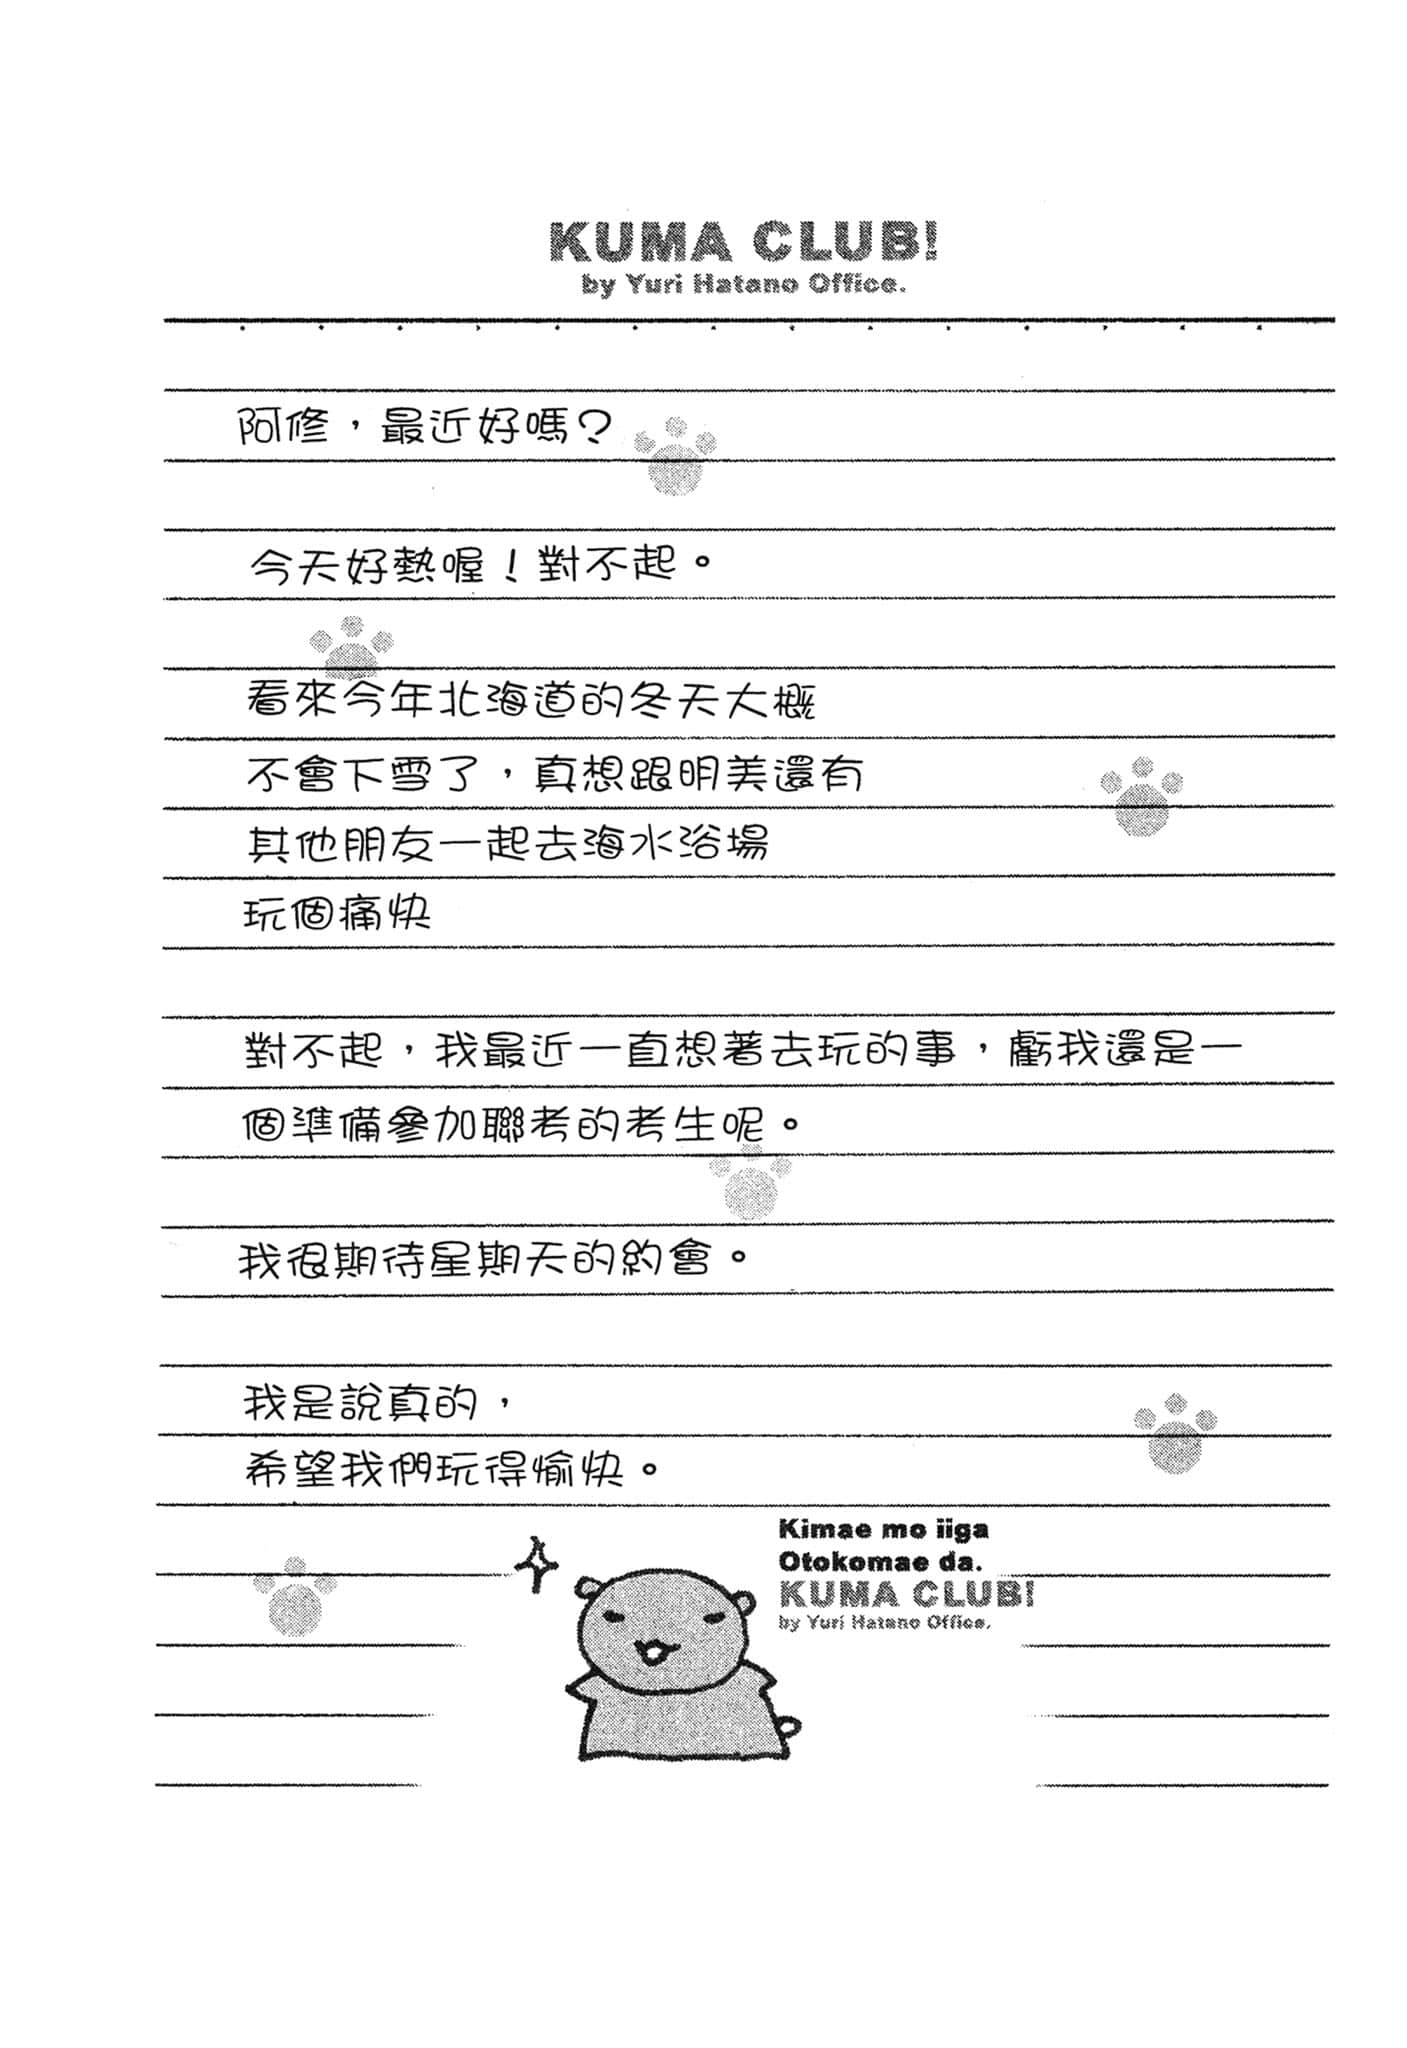 KUMA CLUB!
by Yuri Hatano Office.
阿修，最近好嗎？
今天好熱喔！對不起。
看來今年北海道的冬天大概
不會下雪了，真想跟明美還有
其他朋友一起去海水浴場
玩個痛快
對不起，我最近一直想著去玩的事，虧我還是一
個準備參加聯考的考生呢。
我很期待星期天的約會。
我是說真的，
希望我們玩得愉快。
Kimae mo iiga
Otokomae da.
KUMA CLUB!
by Yuri Hatano Office.